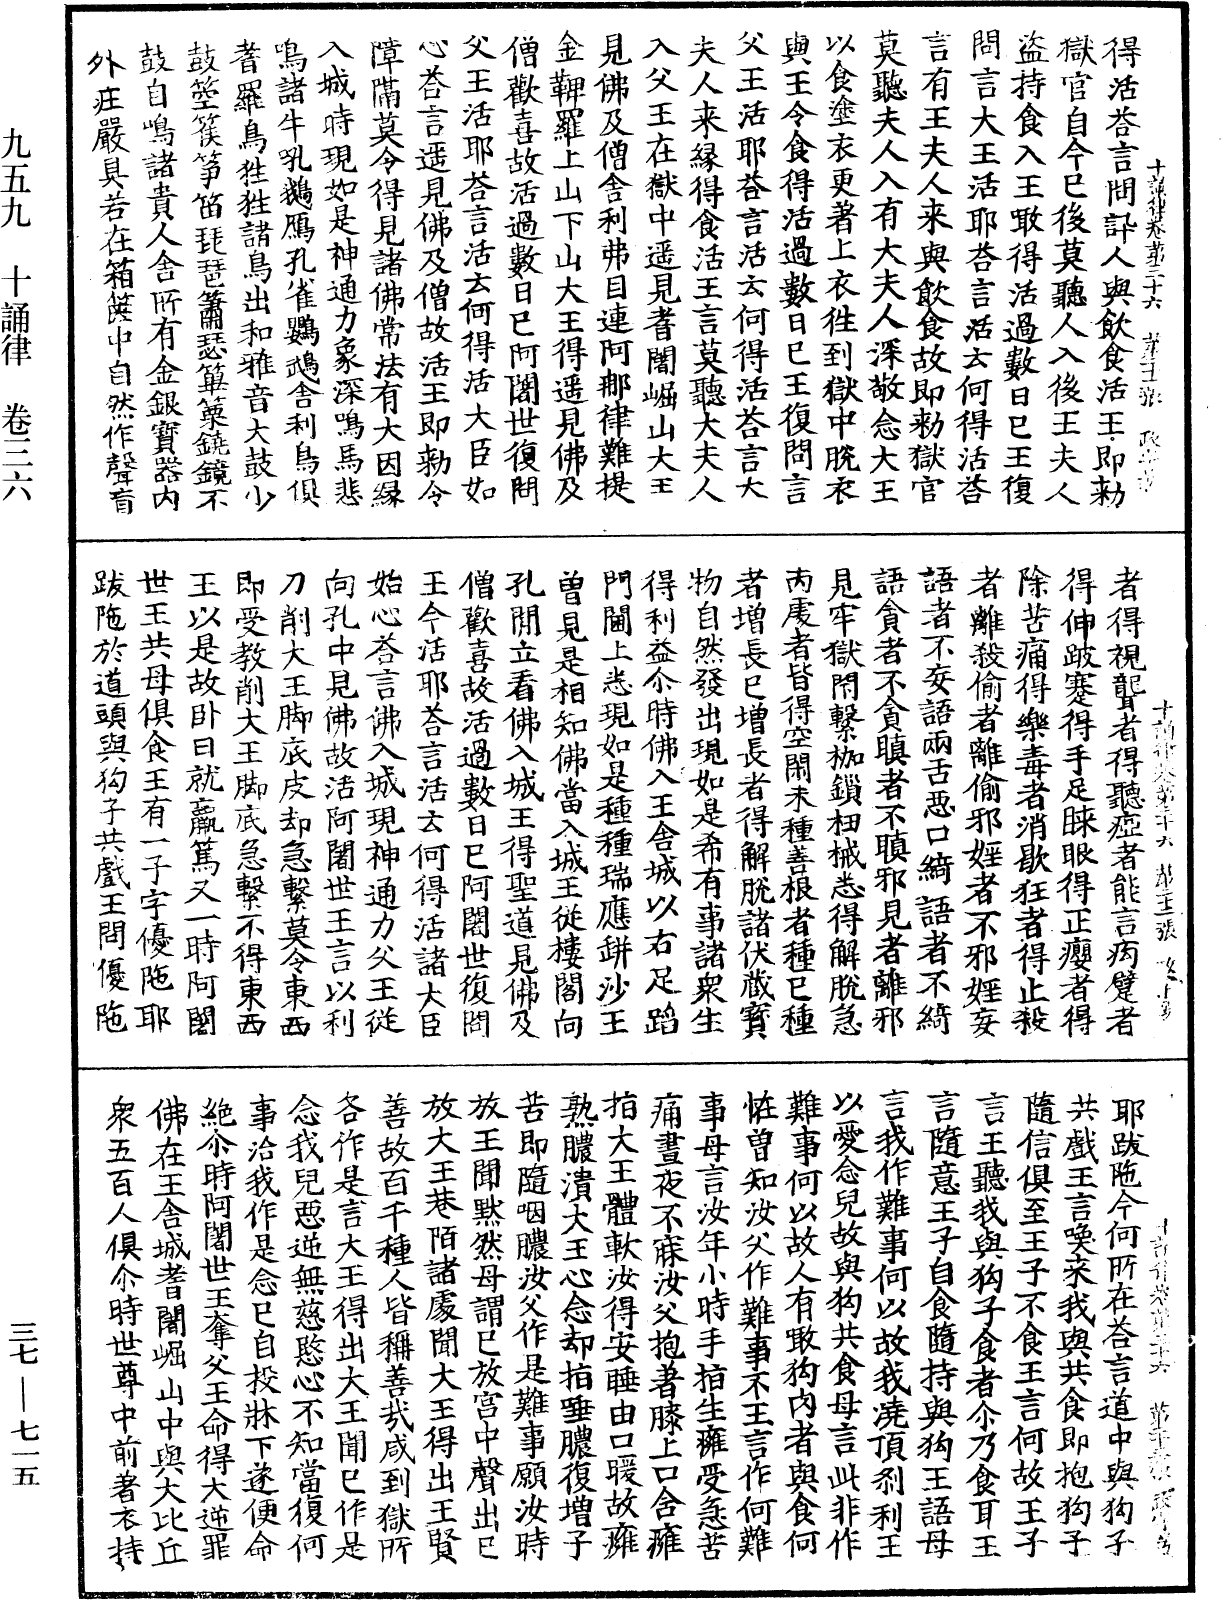 得活荅言問訊人與飲食活王即勑
獄官自今已後莫聽人入後王夫人
盜持食入王噉得活過數日已王復
問言大王活耶荅言活云何得活荅
言有王夫人来與飲食故即勑獄官
莫聽夫人入有大夫人深敬念大王
以食塗衣更著上衣徃到獄中脫衣
與王令食得活過數日已王復問言
父王活耶荅言活云何得活荅言大
夫人来緣得食活王言莫聽大夫人
入父王在獄中遥見耆闍崛山大王
見佛及僧舍利弗目連阿那律難提
金鞞羅上山下山大王得遥見佛及
僧歡喜故活過數日已阿闍世復問
父王活耶荅言活云何得活大臣如
心荅言遥見佛及僧故活王即勑令
障隔莫令得見諸佛常法有大因緣
入城時現如是神通力象深鳴馬悲
鳴諸牛吼鵝鴈孔雀鸚鵡舍利鳥俱
耆羅鳥狌狌諸鳥出和雅音大鼓少
鼓箜篌筝笛琵琶簫瑟篳篥鐃鏡不
鼓自鳴諸貴人舍所有金銀寶器内
外莊嚴具若在箱篋中自然作聲盲
者得視聾者得聽瘂者能言痀躄者
得伸跛蹇得手足睞眼得正癭者得
除苦痛得樂毒者消歇狂者得止殺
者離殺偷者離偷邪婬者不邪婬妄
語者不妄語兩舌惡口綺語者不綺
語貪者不貪瞋者不瞋邪見者離邪
見牢獄閇繫枷鎖杻械悉得解脫急
䦹處者皆得空閑未種善根者種已種
者增長已增長者得解脫諸伏藏寶
物自然發出現如是希有事諸衆生
得利益尒時佛入王舍城以右足蹈
門閫上悉現如是種種瑞應鉼沙王
曾見是相知佛當入城王從樓閣向
孔間立看佛入城王得聖道見佛及
僧歡喜故活過數日已阿闍世復問
王今活耶荅言活云何得活諸大臣
始心荅言佛入城現神通力父王從
向孔中見佛故活阿闍世王言以利
刀削大王脚底皮却急繫莫令東西
即受教削大王脚底急繫不得東西
王以是故卧日就羸篤又一時阿闍
世王共母俱食王有一子字優陁耶
跋陁於道頭與狗子共戲王問優陁
耶跋陁今何所在荅言道中與狗子
共戲王言喚来我與共食即抱狗子
隨信俱至王子不食王言何故王子
言王聽我與狗子食者尒乃食耳王
言隨意王子自食隨持與狗王語母
言我作難事何以故我澆頂刹利王
以愛念兒故與狗共食母言此非作
難事何以故人有噉狗肉者與食何
恠曾知汝父作難事不王言作何難
事母言汝年小時手拍生癰受急苦
痛晝夜不寐汝父抱著膝上口含癰
拍大王體軟汝得安睡由口暖故癰
熟膿潰大王心念却拍唾膿復增子
苦即隨咽膿汝父作是難事願汝時
放王聞默然母謂已放宮中聲出已
放大王巷陌諸處聞大王得出王賢
善故百千種人皆稱善哉咸到獄所
各作是言大王得出大王聞已作是
念我兒惡逆無慈愍心不知當復何
事治我作是念已自投牀下遂便命
絶尒時阿闍世王奪父王命得大逆罪
佛在王舍城耆闍崛山中與大比丘
衆五百人俱尒時世尊中前著衣持
九五九 十誦律 卷三六
三七—七一五